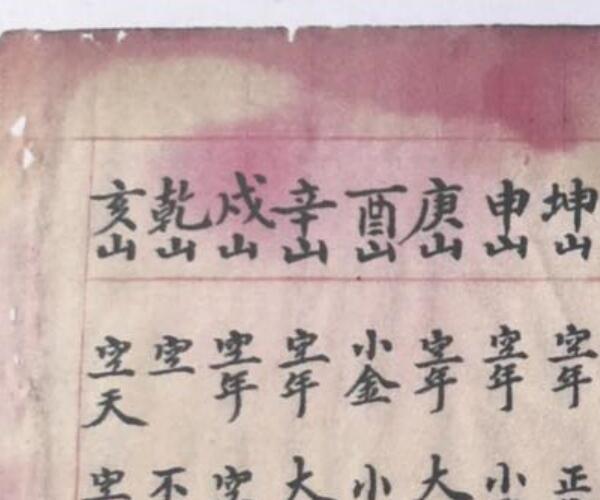 坤山 空年 正
申山 空年 小
庚山 空年 大
酉山 小金 小
辛山 空年 大
戌山 空年 空
乾山 空 不
亥山 空天 空